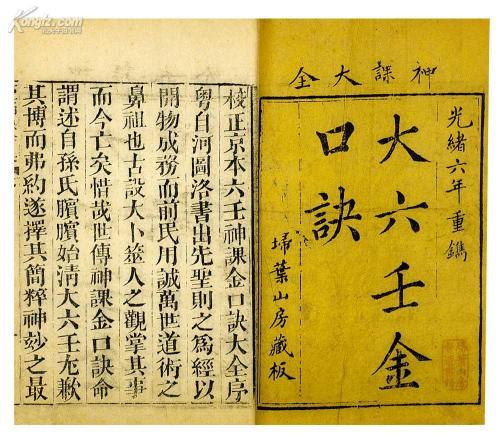 神課大全
光緒六年重鐫
大六壬金
口訣
埽葉山房藏板
校正京本六壬神課金口訣大全序
粵自河圖洛書出先聖則之為經以
開物成務而前民用誠萬世道術之
鼻祖也古設大卜筮人之觀掌其事
而今亡矣惜哉世傳神課金口訣命
謂述自孫氏臏臏始淸大六壬尨歉
其博而弗約遂擇其簡粹神妙之最
Kongfz.com